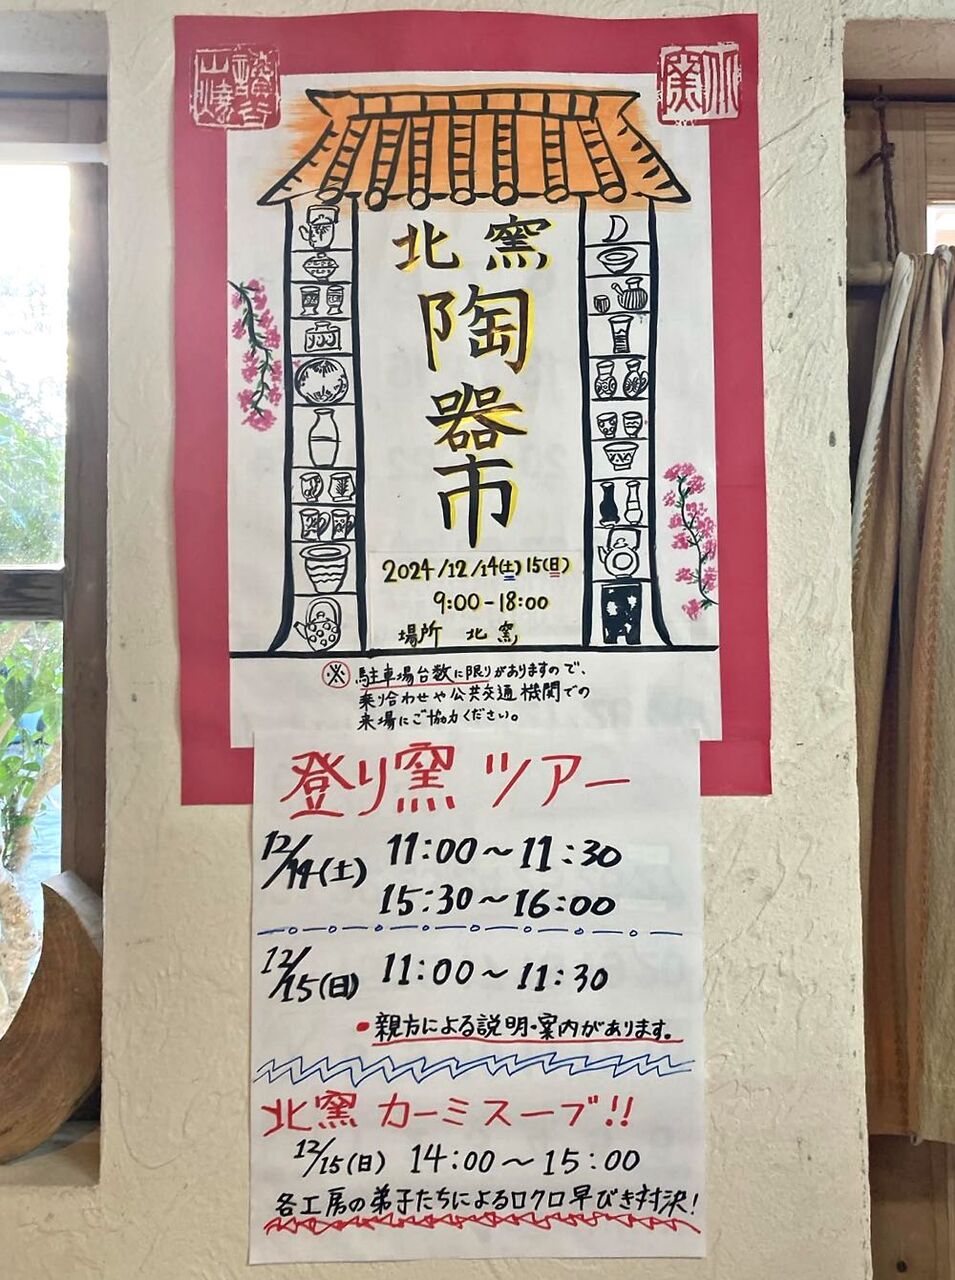 読谷山焼
北窯
北窯
陶
器
市
2024/12/14(土)15(日)
9:00-18:00
場所 北窯
※ 駐車場台数に限りがありますので、
乗り合わせや公共交通機関での
来場にご協力ください。
登り窯ツアー
12/14(土) 11:00～11:30
15:30～16:00
12/15(日) 11:00～11:30
•親方による説明・案内があります。
北窯カーミスーブ!!
12/15(日) 14:00～15:00
各工房の弟子たちによるロクロ早びき対決!